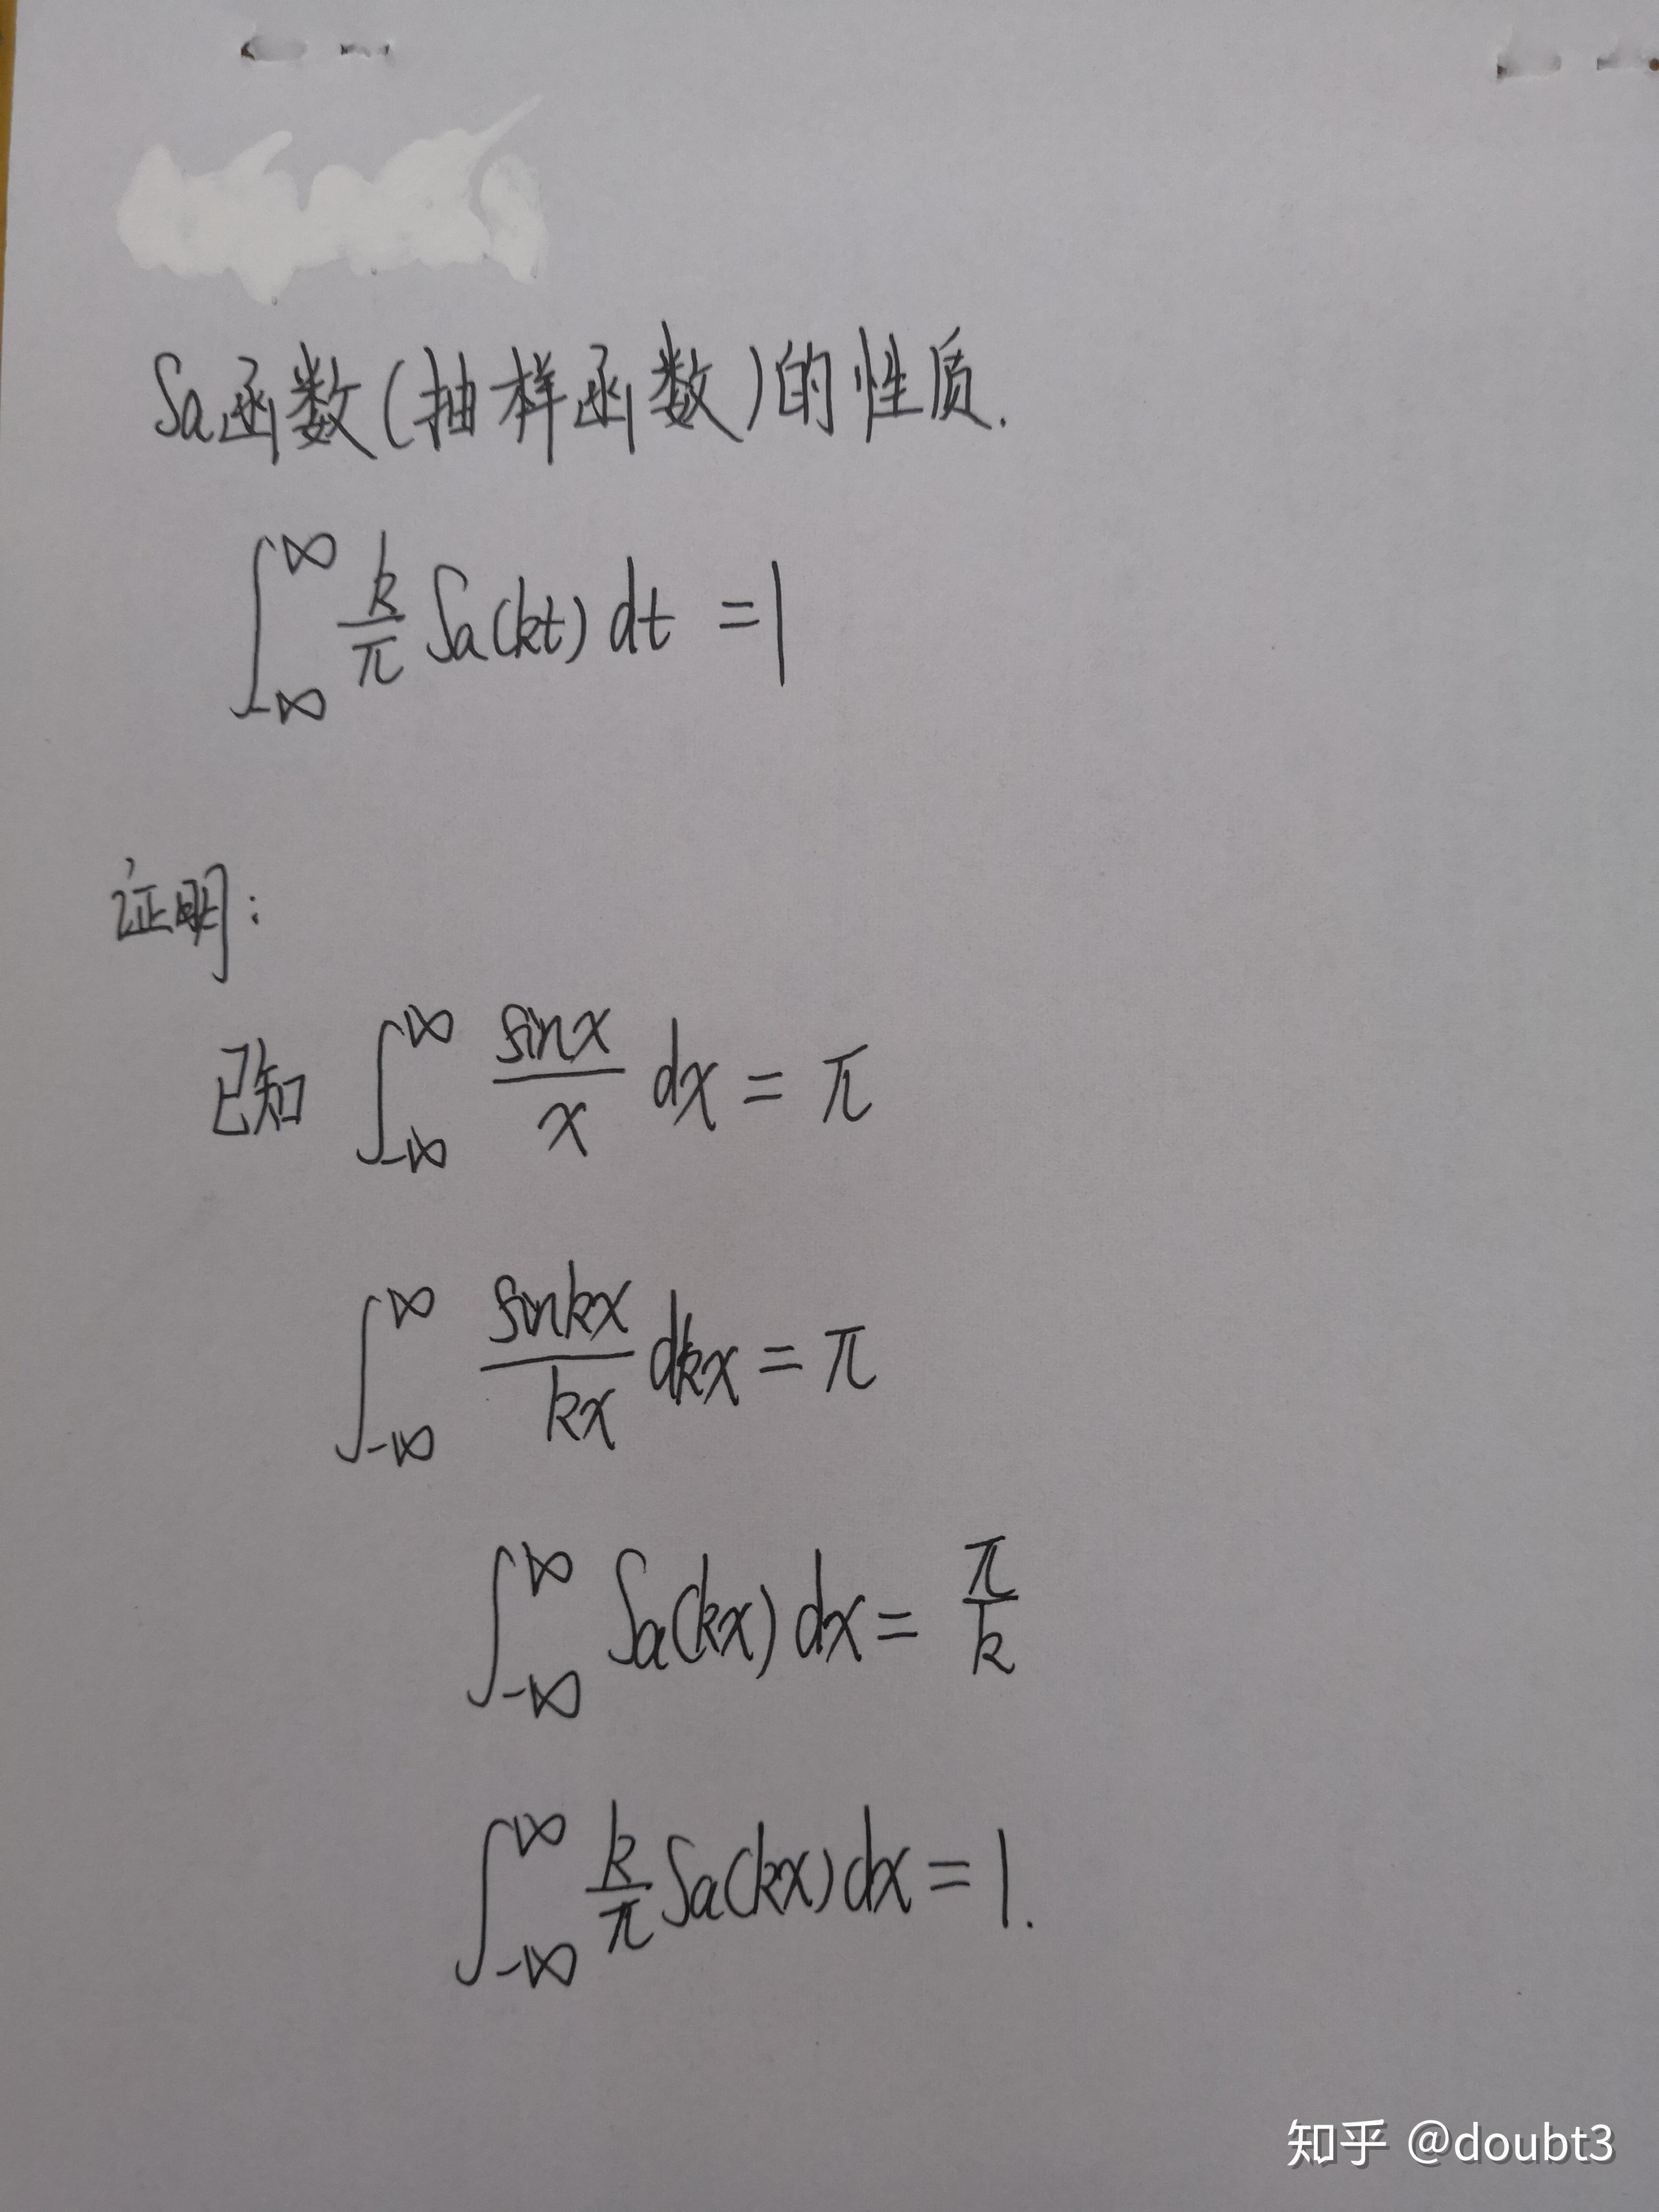 Sa函数(抽样函数)的性质.
∫_{-∞}^{∞} k/π Sa(kt) dt = 1
证明:
已知 ∫_{-∞}^{∞} sinx/x dx = π
∫_{-∞}^{∞} sinkx/kx dkx = π
∫_{-∞}^{∞} Sa(kx) dx = π/k
∫_{-∞}^{∞} k/π Sa(kx) dx = 1.
知乎 @doubt3